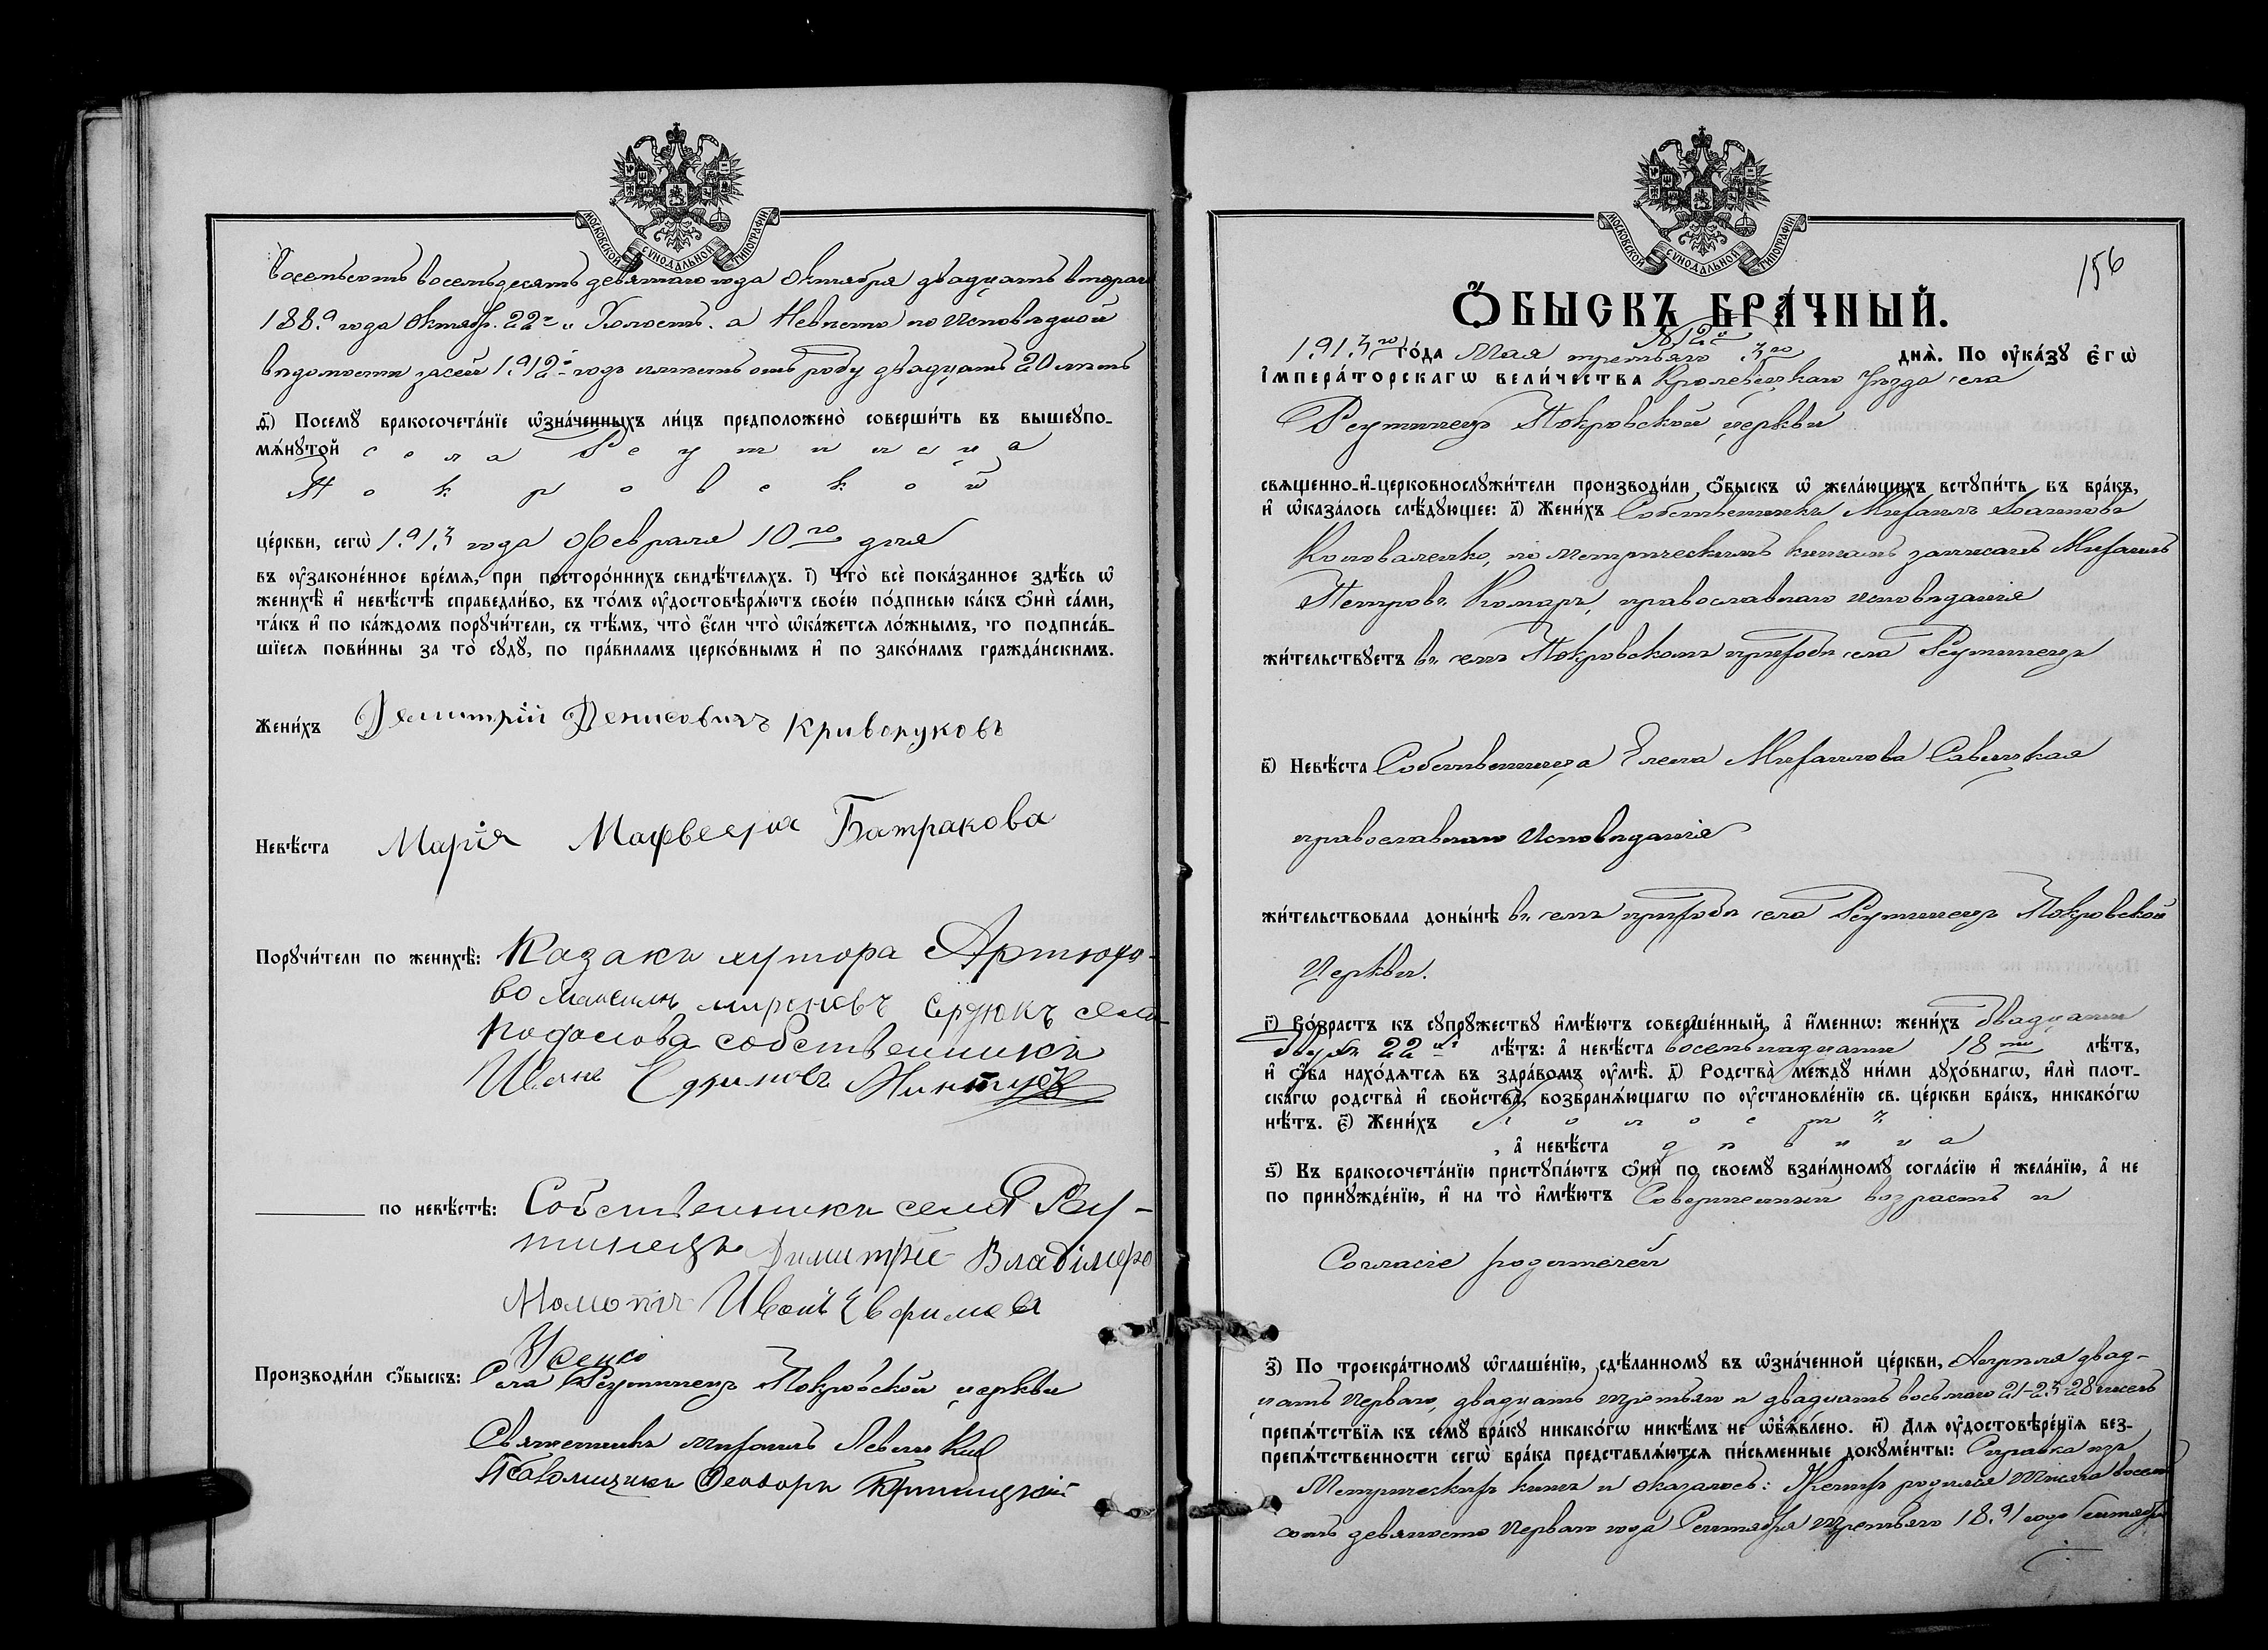 МОСКОВСКОЙ СѴНОДАЛЬНОЙ ТИПОГРАФІИ
Восемьсотъ восемьдесятъ девятаго года Октября двадцать втораго
1889 года Октября 22го и Холостъ. а Невѣста по Исповѣдной
вѣдомости за сей 1912й годъ имѣетъ отъ роду двадцать 20 лѣтъ
д҃) Посемꙋ бракосочета́нїе ѡ҆зна́ченныхъ ли́цъ предположено̀ соверши́ть въ вышеꙋпо-
мѧ́нꙋтой села Реутинецъ
Покровской
це́ркви, сегѡ̀ 1913 года Февраля 10го дня
въ ᲂу҆законе́нное вре́мѧ, при посторо́ннихъ свидѣ́телѧхъ. і҃) Что̀ всѐ пока́занное здѣ́сь ѡ҆
женихѣ̀ и҆ невѣ́стѣ справедли́во, въ то́мъ ᲂу҆достовѣрѧ́ютъ свое́ю по́дписью ка́къ ѻ҆нѝ са́ми,
та́къ и҆ по ка́ждомъ порꙋчи́тели, съ тѣ́мъ, что̀ є҆́сли что̀ ѡ҆ка́жетсѧ ло́жнымъ, то подписа́в-
шїесѧ пови́нны за то̀ сꙋдꙋ̀, по пра́виламъ церко́внымъ и҆ по зако́намъ гражда́нскимъ.
Жени́хъ Демитрій Денисовичъ Криворуковъ
Невѣ́ста Марія Матвеевна Батракова
Порꙋчи́тели по женихѣ̀: Казакъ хутора Артюхо-
во Максимъ Мироновъ Сердюкъ села
Подолова собственникъ
Иванъ Ефимовъ
по невѣ́стѣ: Собственники села Реу-
тинецъ Димитрій Владімеро
Иванъ Евфимовъ
Усенко
Производи́ли ѻ҆́быскъ: Села Реутинецъ Покровской церкви
Священникъ Михаилъ Левицкій
Псаломщикъ Ѳеодоръ
МОСКОВСКОЙ СѴНОДАЛЬНОЙ ТИПОГРАФІИ
156
Ѻ҆́БЫСКЪ БРА́ЧНЫЙ.
№ 12й
1913го го́да Мая третьяго 3го днѧ̀. По ᲂу҆ка́зꙋ Є҆гѡ̀
І҆мпера́торскагѡ вели́чества Кролевецкаго Уѣзда села
Реутинецъ Покровской церкви
свѧщенно-и҆-церковнослꙋжи́тели производи́ли ѻ҆́быскъ ѡ҆ жела́ющихъ встꙋпи́ть въ бра́къ,
и҆ ѡ҆каза́лось слѣ́дꙋющее: а҃) Жени́хъ Собственникъ Михаилъ Іоанновъ
Коноваленко, по метрическимъ книгамъ записанъ Михаилъ
Петровъ Комаръ, православнаго исповѣданія
жи́тельствꙋетъ въ семъ Покровскомъ приходѣ села Реутинецъ
в҃) Невѣ́ста Собственница Елена Михаилова Савицкая
православнаго Исповѣданія
жи́тельствовала доны́нѣ въ семъ приходѣ села Реутинецъ Покровской
Церкви.
г҃) Во́зрастъ къ сꙋпрꙋ́жествꙋ и҆мѣ́ютъ соверше́нный, а҆ и҆́менно: жени́хъ двадцати
двухъ 22хъ лѣ́тъ: а҆ невѣ́ста восемнадцати 18ти лѣ́тъ,
и҆ ѻ҆́ба нахо́дѧтсѧ въ здра́вомъ ᲂу҆мѣ̀. д҃) Родства̀ междꙋ̀ ни́ми дꙋхо́внагѡ, и҆лѝ плот-
ска́гѡ родства̀ и҆ сво́йства̀, возбранѧ́ющагѡ по ᲂу҆становле́нїю св. це́ркви бра́къ, никако́гѡ
нѣ́тъ. є҃) Жени́хъ холостъ
, а҆ невѣ́ста дѣвица
ѕ҃) Къ бракосочета́нїю пристꙋпа́ютъ ѻ҆нѝ по своемꙋ̀ взаи́мномꙋ согла́сїю и҆ жела́нїю, а҆ не
по принꙋжде́нїю, и҆ на то̀ и҆мѣ́ютъ Совершенный возрастъ и
Согласіе родителей
з҃) По троекра́тномꙋ ѡ҆глаше́нїю, сдѣ́ланномꙋ въ ѡ҆зна́ченной це́ркви, Апреля двад-
цать Перваго, двадцать третьяго и двадцать восьмаго 21-23-28 чиселъ
препѧ́тствїѧ къ семꙋ̀ бра́кꙋ никако́гѡ никѣ́мъ не ѡ҆б̾ѧ́влено. и҃) Длѧ ᲂу҆достовѣре́нїѧ без-
препѧ́тственности сегѡ̀ бра́ка представлѧ́ютсѧ пи́сьменные докꙋме́нты: Справка изъ
Метрическихъ книгъ и оказалось: Женихъ родился Тысяча восемь
сотъ девяносто Перваго года Сентября третьяго 1891 года Сентября